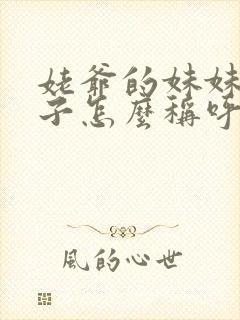 姥爷的妹妹
子怎麼稱呼
風的心世